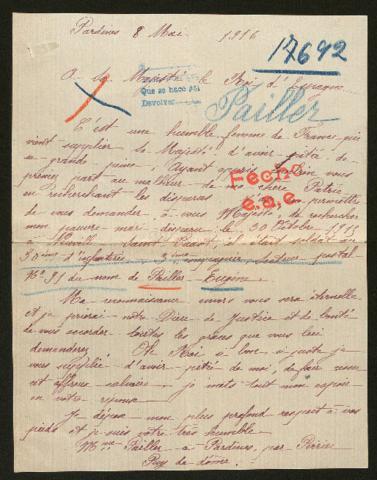 Pardines 8 Mai 1916
17692
A sa Majesté le Roi d'Espagne
Que se hace así
Devolver
Pailler
C'est une humble femme de France qui
vient supplier sa Majesté d'avoir pitié de
sa grande peine. Ayant
prenez part au malheur de chère Patrie
en recherchant les disparus permettre
de vous demander, à vous Majesté, de rechercher
mon pauvre mari disparu le 30 Octobre 1915
à était soldat au
30ème d'infanterie 3ème compagnie secteur postal
N° 91 du nom de Pailler Eugène
Fecho
e.a.e.
Ma reconnaissance envers vous sera éternelle
et je prierai notre Dieu de Justice et de bonté
de vous accorder toutes les grâces que vous lui
demanderez Oh Roi
vous supplie d'avoir pitié de moi, de faire cesser
cet affreux calvaire je mets tout mon espoir
en votre réponse
Je dépose mon plus profond respect à vos
pieds et je suis votre très humble
Mme Pailler à Pardines, par Perrier
Puy de dôme.